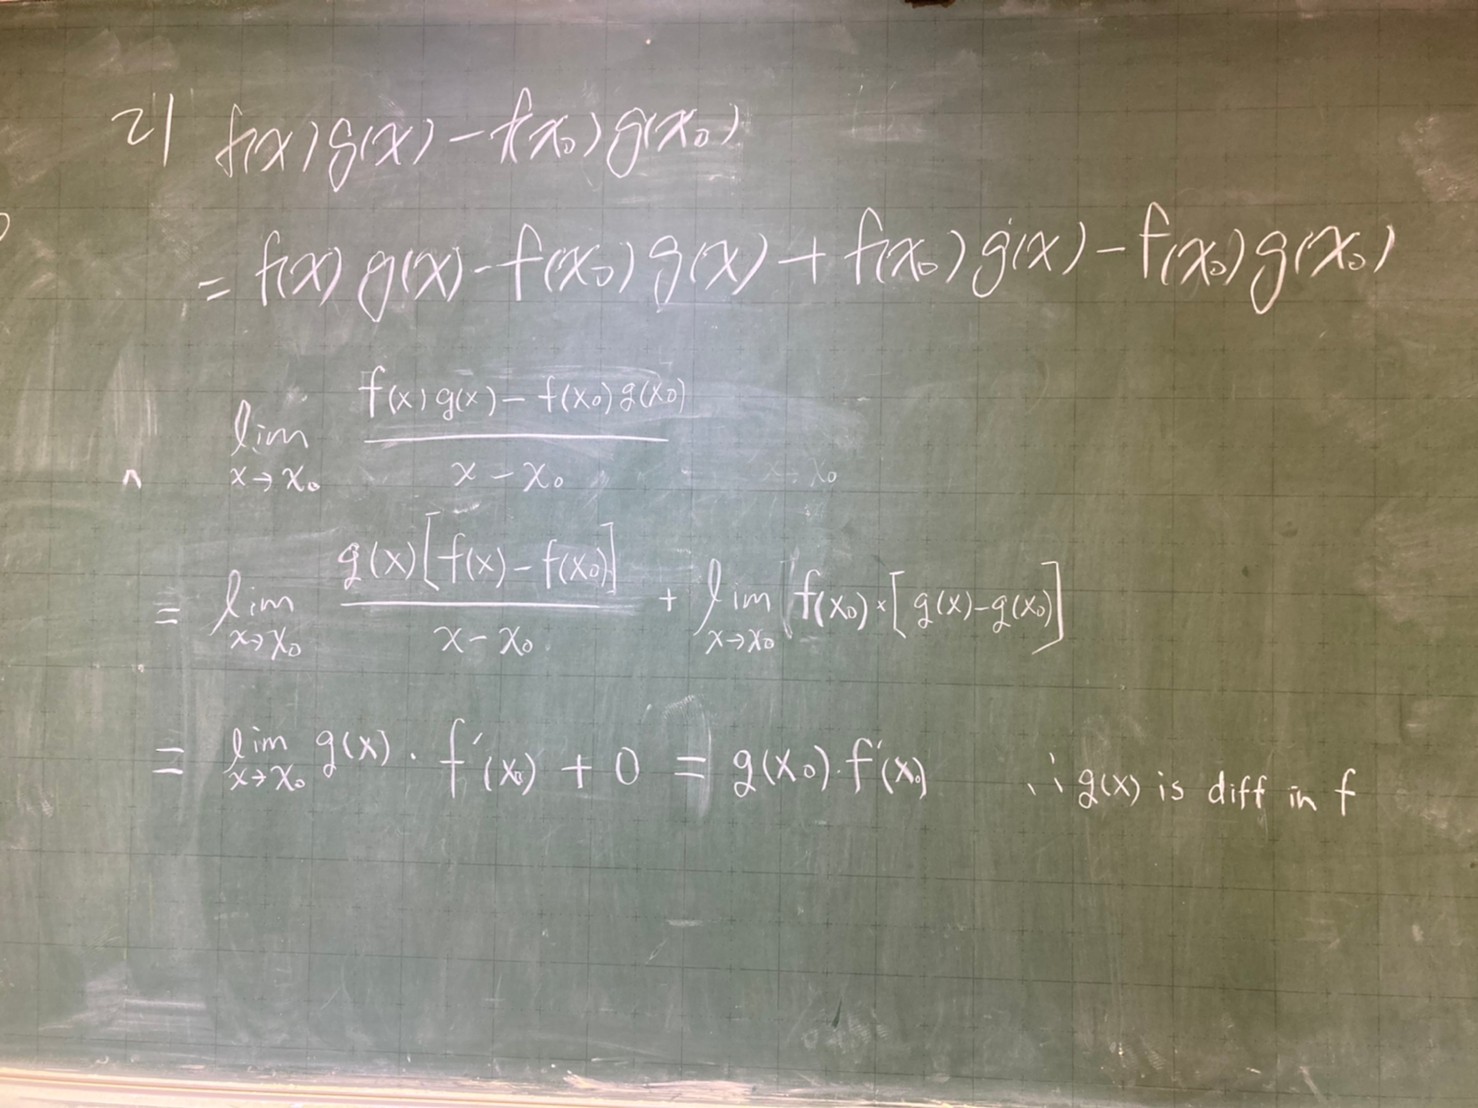 2) f(x)g(x) - f(x₀)g(x₀)
= f(x)g(x) - f(x₀)g(x) + f(x₀)g(x) - f(x₀)g(x₀)
lim x→x₀ (f(x)g(x) - f(x₀)g(x₀)) / (x - x₀)
= lim x→x₀ (g(x)[f(x) - f(x₀)]) / (x - x₀) + lim x→x₀ f(x₀)×[g(x) - g(x₀)]
= lim x→x₀ g(x) · f'(x₀) + 0 = g(x₀) · f'(x₀) ∴ g(x) is diff in f